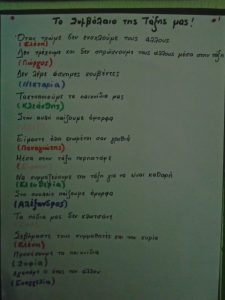 Το Συμβόλαιο της Τάξης μας!
Όταν τρώμε δεν ενοχλούμε τους άλλους.
(Ελένη)
Δεν τρέχουμε και δεν σπρώχνουμε τους άλλους μέσα στην τάξη
(Γιώργος)
Δεν λέμε άσχημες κουβέντες
(Νεκταρία)
Τακτοποιούμε τα παιχνίδια μας
(Κλεάνθης)
Στην αυλή παίζουμε όμορφα
Είμαστε όλοι ενωμένοι σαν γροθιά
(Παναγιώτης)
Μέσα στην τάξη περπατάμε
Να συμμαζεύουμε την τάξη για να είναι καθαρή
(Κλεοθεία)
Στο σχολείο παίζουμε όμορφα
(Αλέξανδρος)
Τα πόδια μας δεν κλωτσάνε
Σεβόμαστε τους συμμαθητές και την κυρία
(Ελένη)
Προσέχουμε τα παιχνίδια
(Σοφία)
Αγαπάμε ο ένας τον άλλον
(Ευαγγελία)